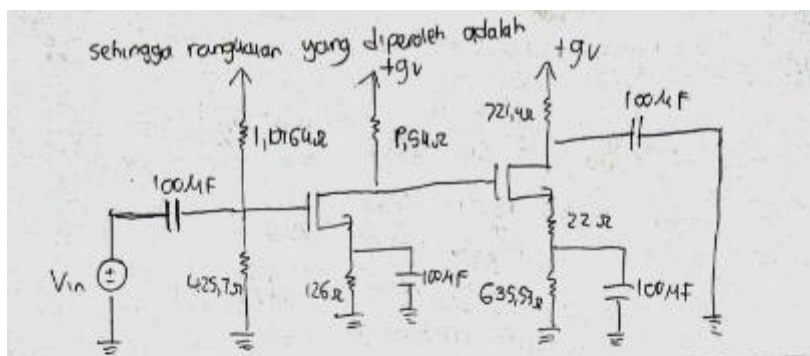 sehingga rangkaian yang diperoleh adalah
+9V
+9V
721,4Ω
100MF
100MF
22Ω
Vin
425,7Ω
126Ω
100MF
635,53Ω
100MF